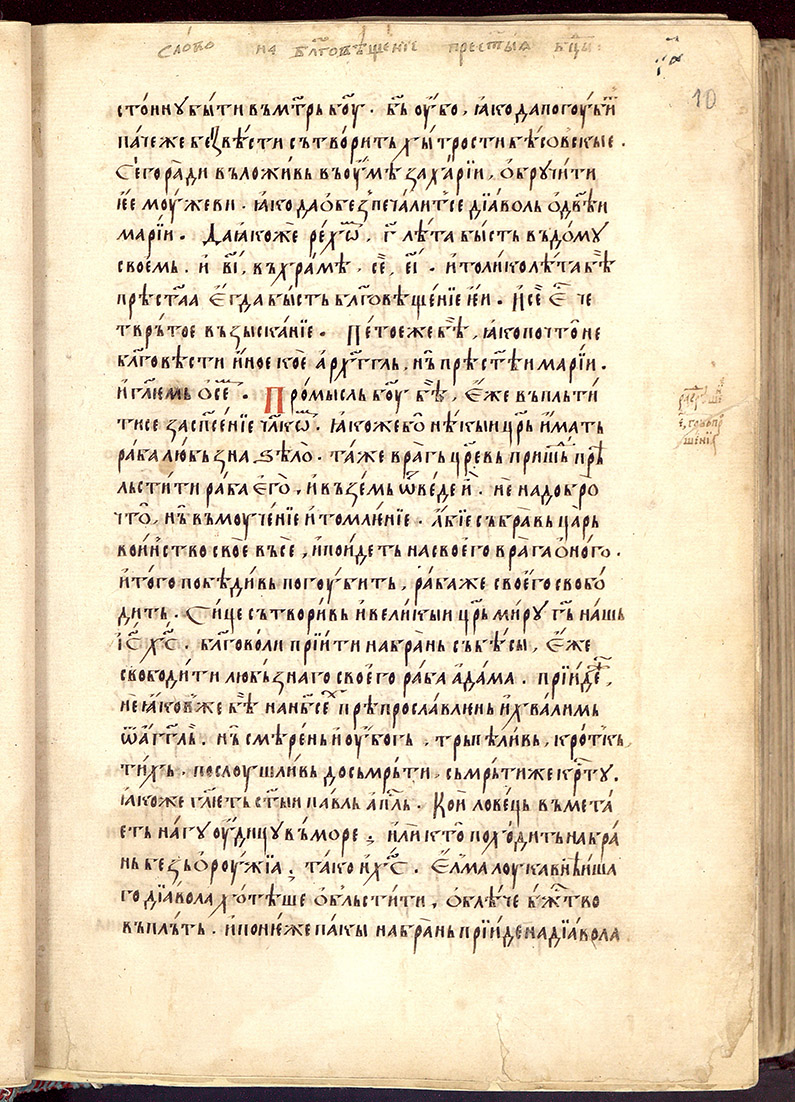 Сло́во на бл҃гове́щенїе прес҃тыꙗ бц҃ы:
10
сто́нну бы́ти въ м҃трь бо҃у. бѣ̀ оу҆́бо, ꙗ҆́ко да погоу́бїи
па́че же без̾вѣ́сти сътво́рить хы́трости бѣсо́вскые.
Сего̀ ра́ди въло́живь въ оу҆́мѣ заха́рїи, о҆бручи́ти
ю҆̀ моу́жеви. ꙗ҆́ко да о҆без̾печа́лит се дїа́воль ѿ дв҃ѣи
марі́и. Да ꙗ҆́коже ре́хѡм, г҃ лѣ́та бы́сть въ до́му
свое́мь. и҆ в҃і, въ хра́мѣ. сѐ, е҃і. и҆ толи́ко лѣ́та бѣ̀
прѣс҃таа Е҆гда̀ бы́сть бл҃говѣще́нїе е҆́и. И҆ се̏ Е҆с че
твръ́тое въз̾ыска́нїе. Пе́тое же бѣ̀, ꙗ҆́ко почто̀ не
бл҃говѣ́сти и҆́ное коѐ а҆рха́гг҃ль, нь̀ прѣс҃тѣи марі́и.
и҆ гл҃емь о҆ се́м. Про́мысль бо҃у бѣ̀, е҆́же въпльти́
ти се за сп҃се́нїе чл҃кѡм. ꙗ҆́коже бо̀ нѣ́кыи цр҃ь и҆́мать
ра́ба лю́бьзна ѕѣло̀. та́же вра́гь цр҃евь прише́д прѣ
льсти́ти ра́ба е҆го̀, и҆ въ́земь ѿве́де и҆̀. не на добро̀
что̀, нь̀ въ моуче́нїе и҆ томле́нїе. а҆́бїе събра́вь ца́рь
во́инство своѐ въсѐ, и҆ по́идеть на своего̀ врага̀ о҆́ного.
и҆ того̀ побѣди́вь погоу́бить, ра́ба же своего̀ свобо́
дить. Си́це сътвори́вь и҆ вели́кыи цр҃ь ми́ру г҃ь на́шь
і҆с҃ х҃с. бл҃гово́ли прїи́ти на бра́нь съ бѣ́сы, е҆́же
свободи́ти любьзна́го своего̀ ра́ба а҆да́ма. прїи́де же,
не ꙗ҆́коже бѣ̀ на нб҃сех прѣпросла́влень и҆ хва́лимь
ѿ а҆́гг҃ль. нь̀ смѣ́рень и҆ оу҆бо́гь, трьпели́вь, кро́ткь,
ти́хь. послоу́шливь до сьмрь́ти, сьмрь́ти же кр҃ту.
ꙗ҆́коже гл҃еть с҃тыи па́вль а҆п҃ль. Ко́и лове́ць въмета́
еть на́гу оу҆́дицу въ мо́ре; и҆ли̏ кто̀ похо́дить на бра́
нь без̾ о҆роу́жїа; та́ко и҆ х҃с. Е҆лма̀ лоука́внѣиша
го дїа́вола хо́тѣше о҆бльсти́ти, о҆блѣ́че бж҃тво
въ пльть. и҆ поне́же па́кы на бра́нь прїи́де на дїа́вола